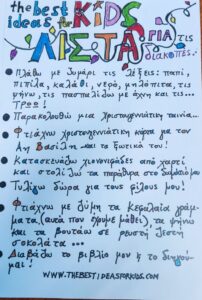 the best
ideas for KIDS
ΛΙΣΤΑ ΓΙΑ τις
διακοπές..
• Πλάθω με ζυμάρι τις λέξεις: παπί,
πιπίλα, καλάθι, νερό, μηλόπιτα, τις
ψήνω, τις πασπαλίζω με άχνη και τις...
Τρώω!
• Παρακολουθώ μια χριστουγεννιάτικη ταινία...
• Φτιάχνω χριστουγεννιάτικη κάρτα για τον
Άγη Βασίλη και το ξωτικό του!
• Κατασκευάζω χιονονιφάδες από χαρτί
και στολίζω τα παράθυρα στο δωμάτιό μου
• Τυλίγω δώρα για τους φίλους μου!
• Φτιάχνω με ζύμη τα κεφαλαία γράμ-
ματα (αυτά που έχουμε μάθει), τα ψήνω
και τα βουτάω σε ρευστή ζεστή
σοκολάτα...
• Διαβάζω το βιβλίο μου κ το
μαι!
WWW.THEBESTIDEASFORKIDS.COM